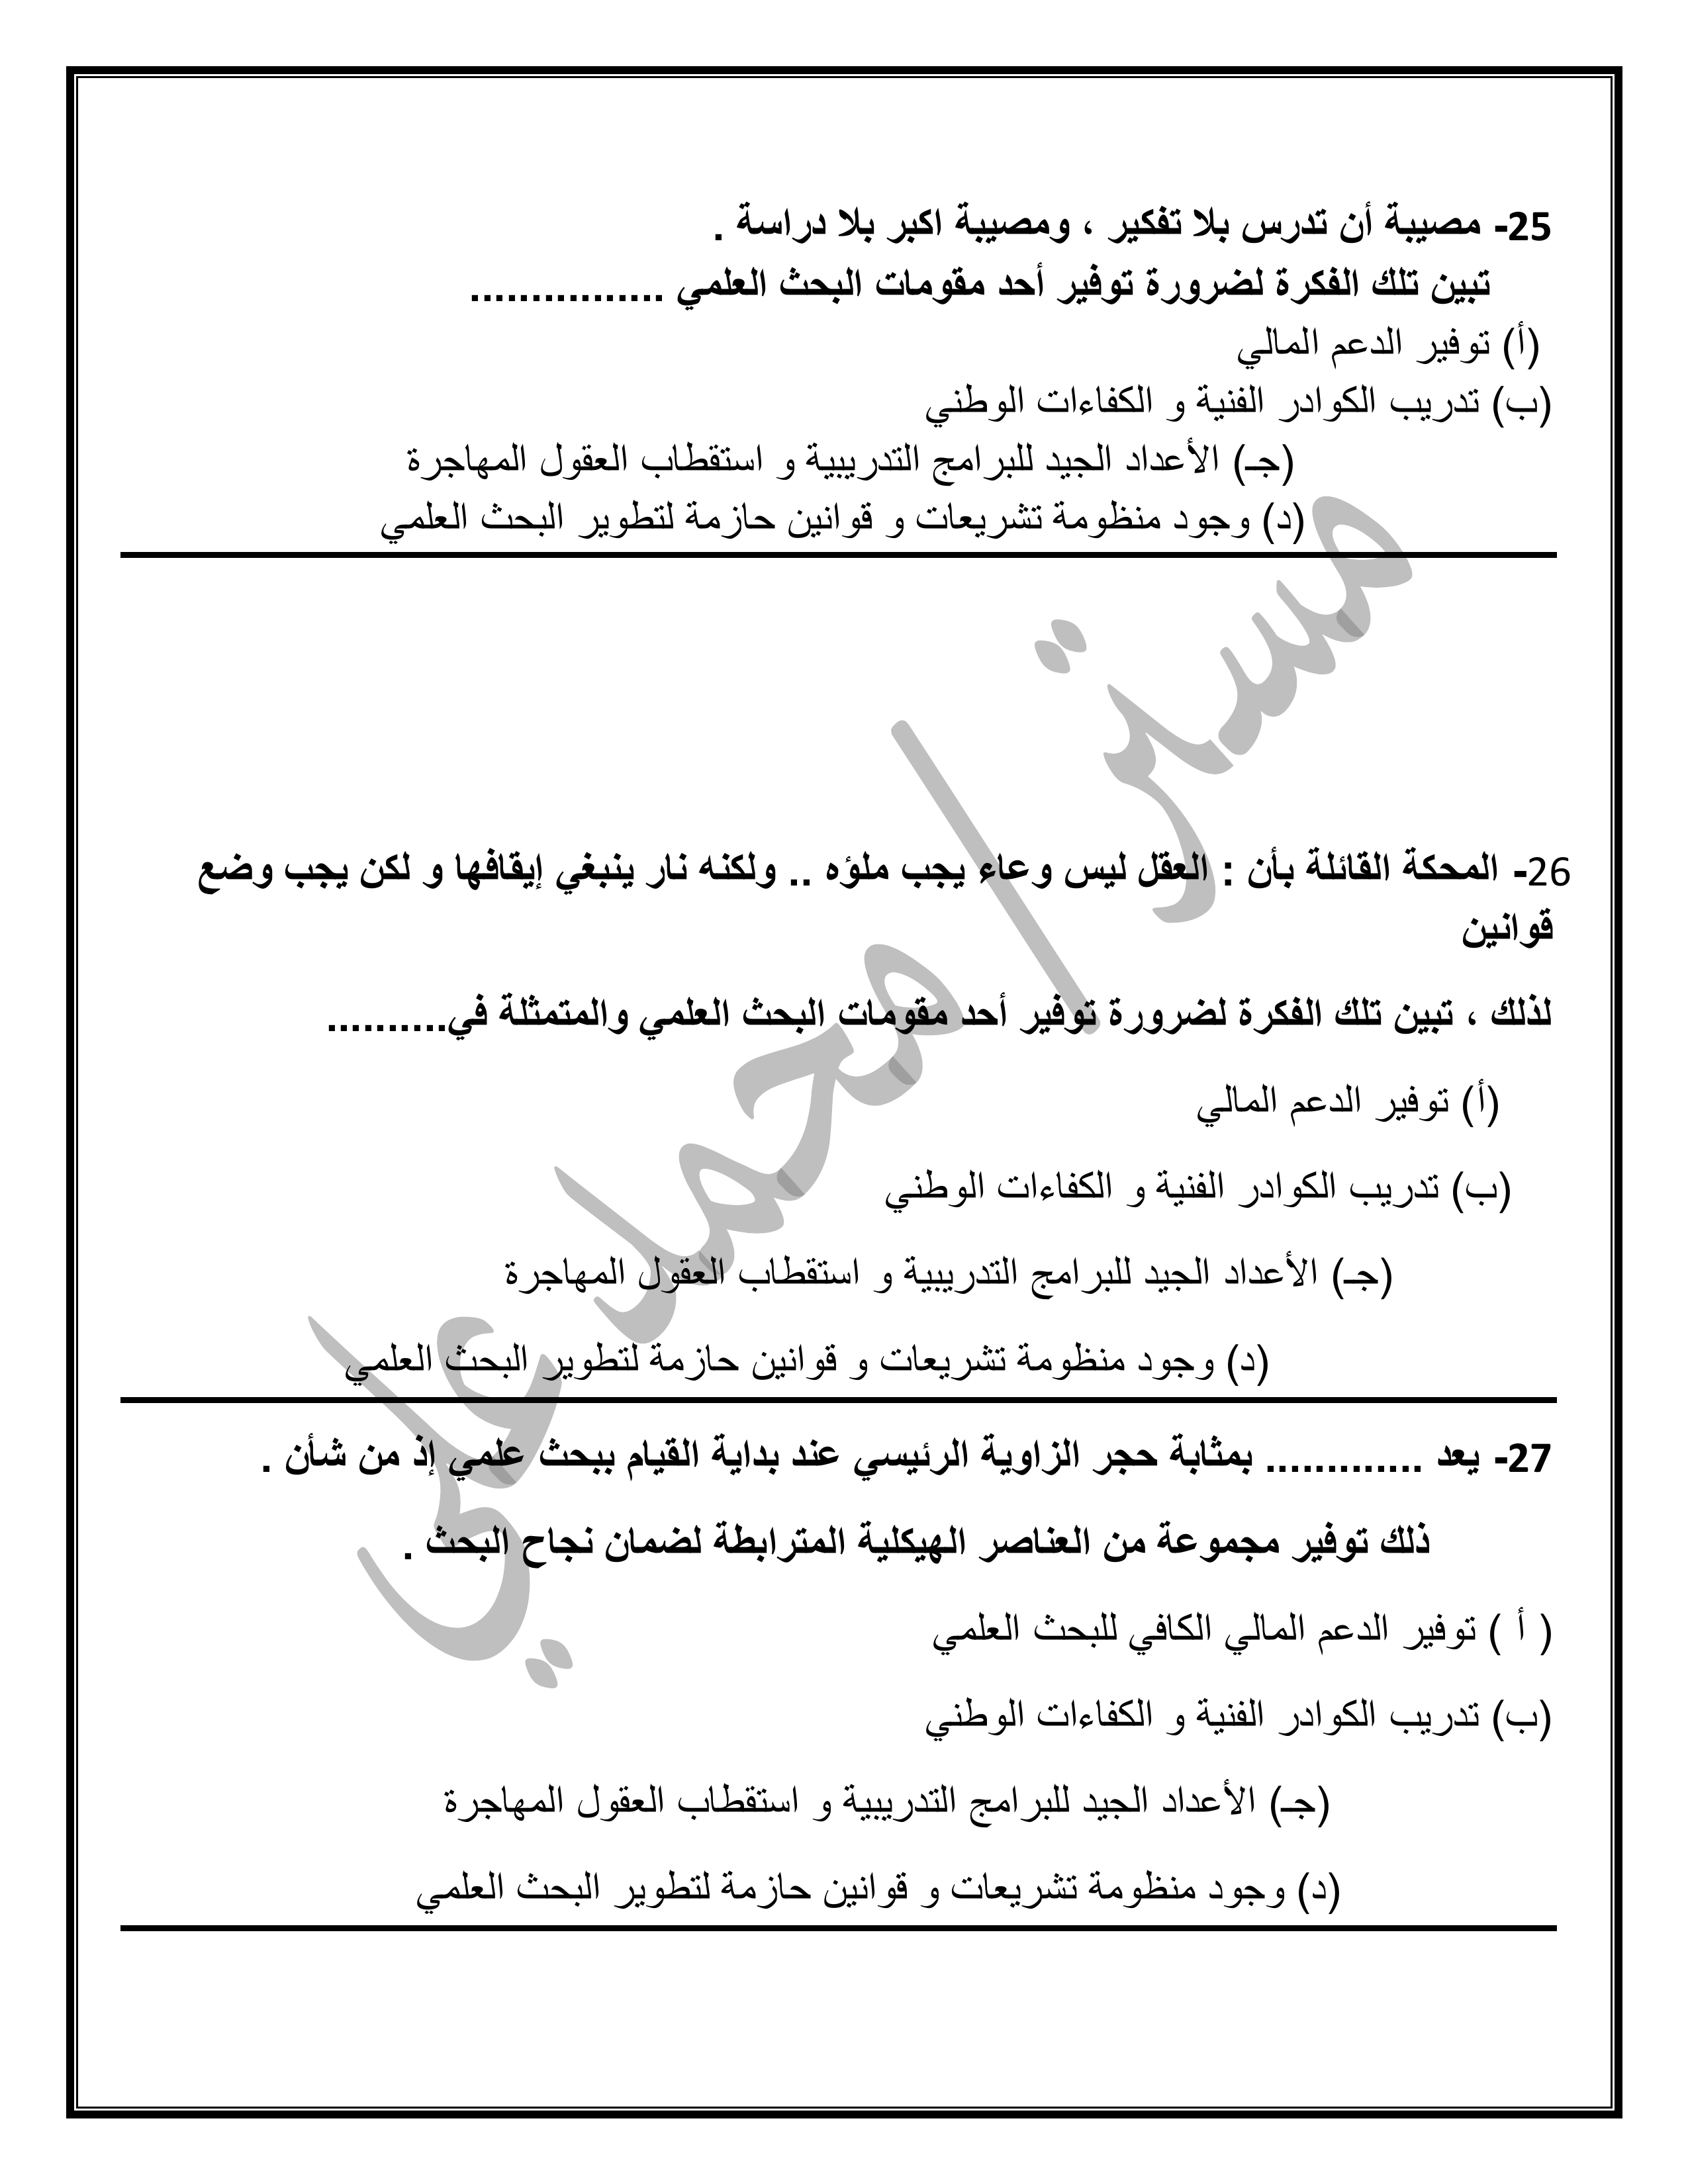 25- مصيبة أن تدرس بلا تفكير ، ومصيبة اكبر بلا دراسة .
تبين تلك الفكرة لضرورة توفير أحد مقومات البحث العلمي ................
(أ) توفير الدعم المالي
(ب) تدريب الكوادر الفنية و الكفاءات الوطني
(جـ) الأعداد الجيد للبرامج التدريبية و استقطاب العقول المهاجرة
(د) وجود منظومة تشريعات و قوانين حازمة لتطوير البحث العلمي
مستر/محمد علي
26- المحكة القائلة بأن : العقل ليس وعاء يجب ملؤه .. ولكنه نار ينبغي إيقافها و لكن يجب وضع
قوانين
لذلك ، تبين تلك الفكرة لضرورة توفير أحد مقومات البحث العلمي والمتمثلة في..........
(أ) توفير الدعم المالي
(ب) تدريب الكوادر الفنية و الكفاءات الوطني
(جـ) الأعداد الجيد للبرامج التدريبية و استقطاب العقول المهاجرة
(د) وجود منظومة تشريعات و قوانين حازمة لتطوير البحث العلمي
27- يعد ............. بمثابة حجر الزاوية الرئيسي عند بداية القيام ببحث علمي إذ من شأن .
ذلك توفير مجموعة من العناصر الهيكلية المترابطة لضمان نجاح البحث .
( أ ) توفير الدعم المالي الكافي للبحث العلمي
(ب) تدريب الكوادر الفنية و الكفاءات الوطني
(جـ) الأعداد الجيد للبرامج التدريبية و استقطاب العقول المهاجرة
(د) وجود منظومة تشريعات و قوانين حازمة لتطوير البحث العلمي